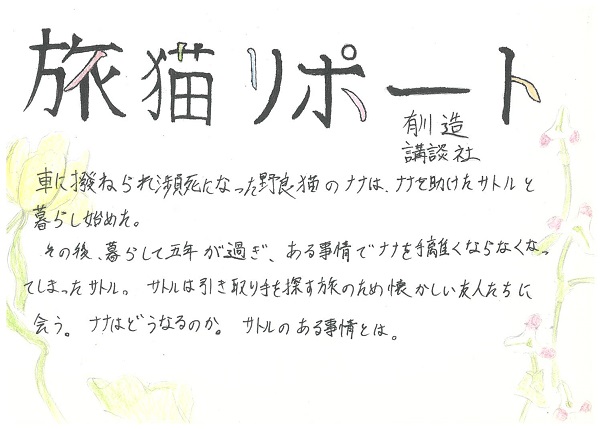 旅猫リポート
有川 造
講談社
車に撥ねられ瀕死になった野良猫のナナは、ナナを助けたサトルと
暮らし始めた。
その後、暮らして五年が過ぎ、ある事情でナナを手離くならなくなっ
てしまったサトル。 サトルは引き取り手を探す旅のため懐かしい友人たちに
会う。 ナナはどうなるのか。 サトルのある事情とは。